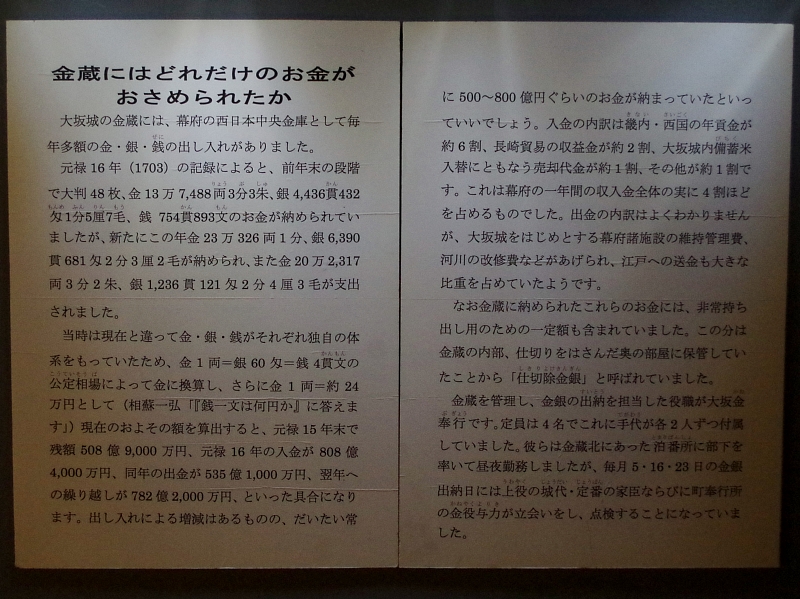 金蔵にはどれだけのお金が
おさめられたか
大坂城の金蔵には、幕府の西日本中央金庫として毎
年多額の金・銀・銭の出し入れがありました。
元禄16年(1703)の記録によると、前年末の段階
で大判48枚、金13万7,488両3分3朱、銀4,436貫432
匁1分5厘7毛、銭 754貫893文のお金が納められてい
ましたが、新たにこの年金23万326両1分、銀6,390
貫681匁2分3厘2毛が納められ、また金20万2,317
両3分2朱、銀1,236貫121匁2分4厘3毛が支出
されました。
当時は現在と違って金・銀・銭がそれぞれ独自の体
系をもっていたため、金1両=銀60匁=銭4貫文の
公定相場によって金に換算し、さらに金1両=約24
万円として(相蘇一弘「『銭一文は何円か』に答えま
す」)現在のおよその額を算出すると、元禄15年末で
残額508億9,000万円、元禄16年の入金が808億
4,000万円、同年の出金が535億1,000万円、翌年へ
の繰り越しが782億2,000万円、といった具合になり
ます。出し入れによる増減はあるものの、だいたい常
に500〜800億円ぐらいのお金が納まっていたといっ
ていいでしょう。入金の内訳は畿内・西国の年貢金が
約6割、長崎貿易の収益金が約2割、大坂城内備蓄米
入替にともなう売却代金が約1割、その他が約1割で
す。これは幕府の一年間の収入金全体の実に4割ほど
を占めるものでした。出金の内訳はよくわかりません
が、大坂城をはじめとする幕府諸施設の維持管理費、
河川の改修費などがあげられ、江戸への送金も大きな
比重を占めていたようです。
なお金蔵に納められたこれらのお金には、非常持ち
出し用のための一定額も含まれていました。この分は
金蔵の内部、仕切りをはさんだ奥の部屋に保管してい
たことから「仕切除金銀」と呼ばれていました。
金蔵を管理し、金銀の出納を担当した役職が大坂金
奉行です。定員は4名でこれに手代が各2人ずつ付属
していました。彼らは金蔵北にあった泊番所に部下を
率いて昼夜勤務しましたが、毎月5・16・23日の金銀
出納日には上役の城代・定番の家臣ならびに町奉行所
の金役与力が立会いをし、点検することになっていま
した。